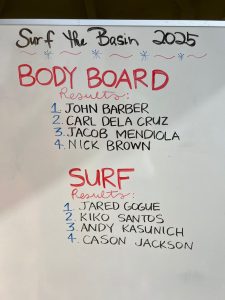 Surf The Basin 2025
BODY BOARD
Results:
1. JOHN BARBER
2. CARL DELA CRUZ
3. JACOB MENDIOLA
4. NICK BROWN
SURF
Results:
1. JARED GOGUE
2. KIKO SANTOS
3. ANDY KASUNICH
4. CASON JACKSON